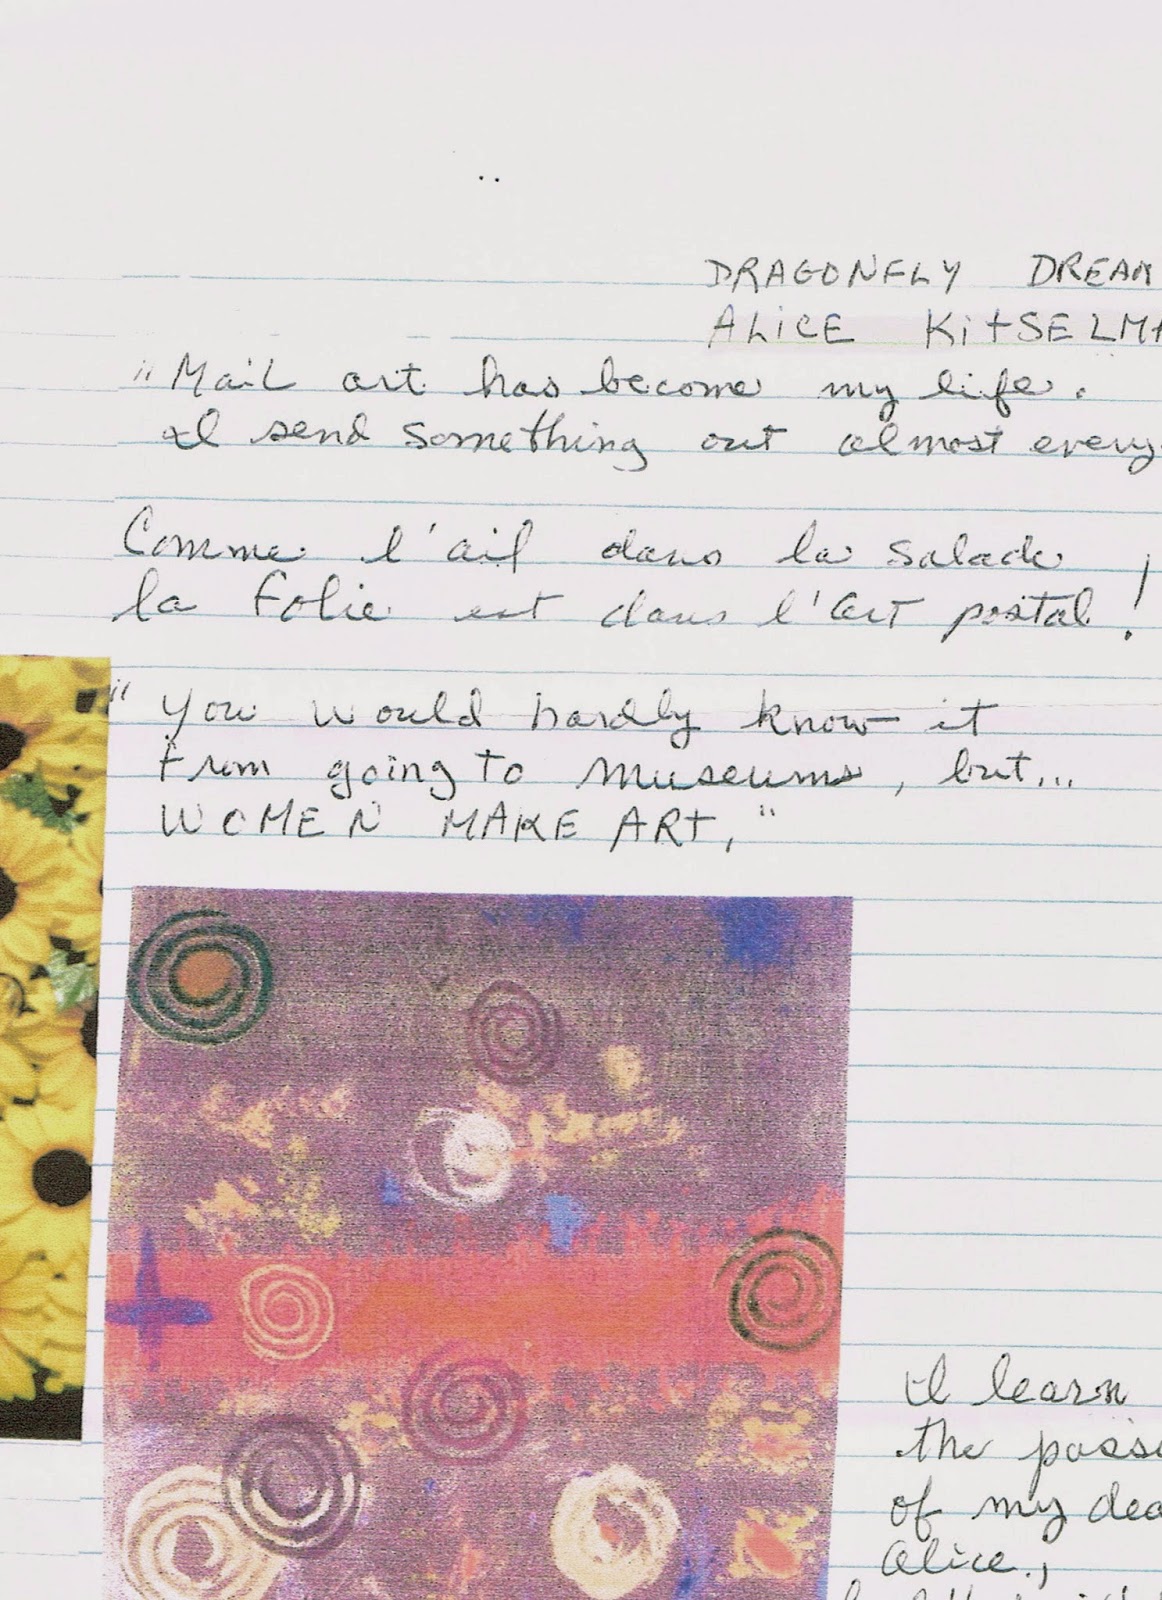 DRAGONFLY DREAM
ALICE KitSELMA
"Mail art has become my life.
I send something out almost every
Comme l'ail dans la salade
la folie est dans l'art postal!
"You would hardly know it
from going to museums, but...
WOMEN MAKE ART,"
I learn
the passa
of my dea
Alice,